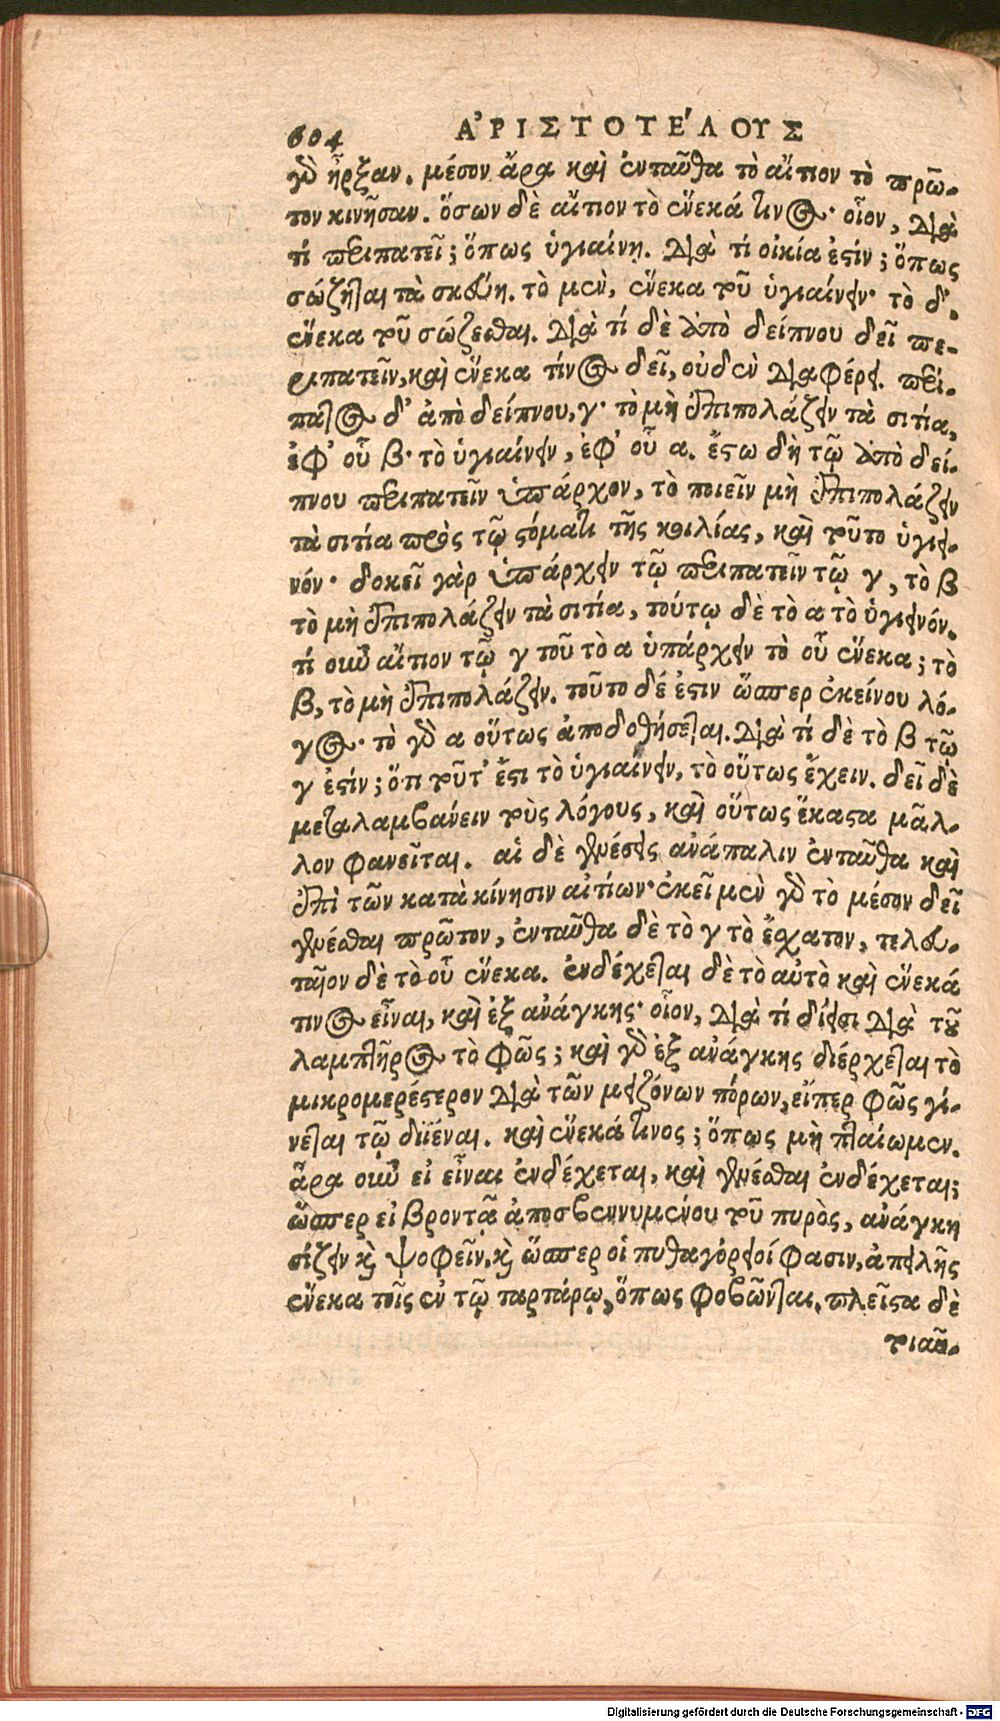 604 ἈΡΙΣΤΟΤΈΛΟΥΣ
γὰρ ἦρξαν. μέσον ἄρα καὶ ἐνταῦθα τὸ αἴτιον τὸ πρῶ-
τον κινῆσαν. ὅσων δὲ αἴτιον τὸ ἕνεκά τινος· οἷον, διὰ
τί περιπατεῖ; ὅπως ὑγιαίνῃ. διὰ τί οἰκία ἐστίν; ὅπως
σώζηται τὰ σκεύη. τὸ μὲν, ἕνεκα τοῦ ὑγιαίνειν· τὸ δ',
ἕνεκα τοῦ σώζεσθαι. διὰ τί δὲ ἀπὸ δείπνου δεῖ πε-
ριπατεῖν, καὶ ἕνεκα τίνος δεῖ, οὐδὲν διαφέρει. περί-
πατος δ' ἀπὸ δείπνου, γ· τὸ μὴ ἐπιπολάζειν τὰ σιτία,
ἐφ' οὗ β· τὸ ὑγιαίνειν, ἐφ' οὗ α. ἔστω δὴ τῷ ἀπὸ δεί-
πνου περιπατεῖν ὑπάρχον, τὸ ποιεῖν μὴ ἐπιπολάζειν
τὰ σιτία πρὸς τῷ στόματι τῆς κοιλίας, καὶ τοῦτο ὑγιει-
νόν· δοκεῖ γὰρ ὑπάρχειν τῷ περιπατεῖν τῷ γ, τὸ β
τὸ μὴ ἐπιπολάζειν τὰ σιτία, τούτῳ δὲ τὸ α τὸ ὑγιεινόν.
τί οὖν αἴτιον τῷ γ τοῦ τὸ α ὑπάρχειν τὸ οὗ ἕνεκα; τὸ
β, τὸ μὴ ἐπιπολάζειν. τοῦτο δέ ἐστιν ὥσπερ ἐκείνου λό-
γος· τὸ γὰρ α οὕτως ἀποδοθήσεται. διὰ τί δὲ τὸ β τῷ
γ ἐστίν; ὅτι τοῦτ' ἔστι τὸ ὑγιαίνειν, τὸ οὕτως ἔχειν. δεῖ δὲ
μεταλαμβάνειν τοὺς λόγους, καὶ οὕτως ἕκαστα μᾶλ-
λον φανεῖται. αἱ δὲ γενέσεις ἀνάπαλιν ἐνταῦθα καὶ
ἐπὶ τῶν κατὰ κίνησιν αἰτίων· ἐκεῖ μὲν γὰρ τὸ μέσον δεῖ
γενέσθαι πρῶτον, ἐνταῦθα δὲ τὸ γ τὸ ἔσχατον, τελευ-
ταῖον δὲ τὸ οὗ ἕνεκα. ἐνδέχεται δὲ τὸ αὐτὸ καὶ ἕνεκά
τινος εἶναι, καὶ ἐξ ἀνάγκης· οἷον, διὰ τί δίεισι διὰ τοῦ
λαμπτῆρος τὸ φῶς; καὶ γὰρ ἐξ ἀνάγκης διέρχεται τὸ
μικρομερέστερον διὰ τῶν μειζόνων πόρων, εἴπερ φῶς γί-
νεται τῷ διϊέναι. καὶ ἕνεκά τινος; ὅπως μὴ πταίωμεν.
ἆρα οὖν εἰ εἶναι ἐνδέχεται, καὶ γενέσθαι ἐνδέχεται;
ὥσπερ εἰ βροντᾷ ἀποσβεννυμένου τοῦ πυρὸς, ἀνάγκη
σίζειν καὶ ψοφεῖν, καὶ ὥσπερ οἱ πυθαγόρειοί φασιν, ἀπειλῆς
ἕνεκα τοῖς ἐν τῷ ταρτάρῳ, ὅπως φοβῶνται. πλεῖστα δὲ
τοιαῦ-
Digitalisierung gefördert durch die Deutsche Forschungsgemeinschaft - DFG